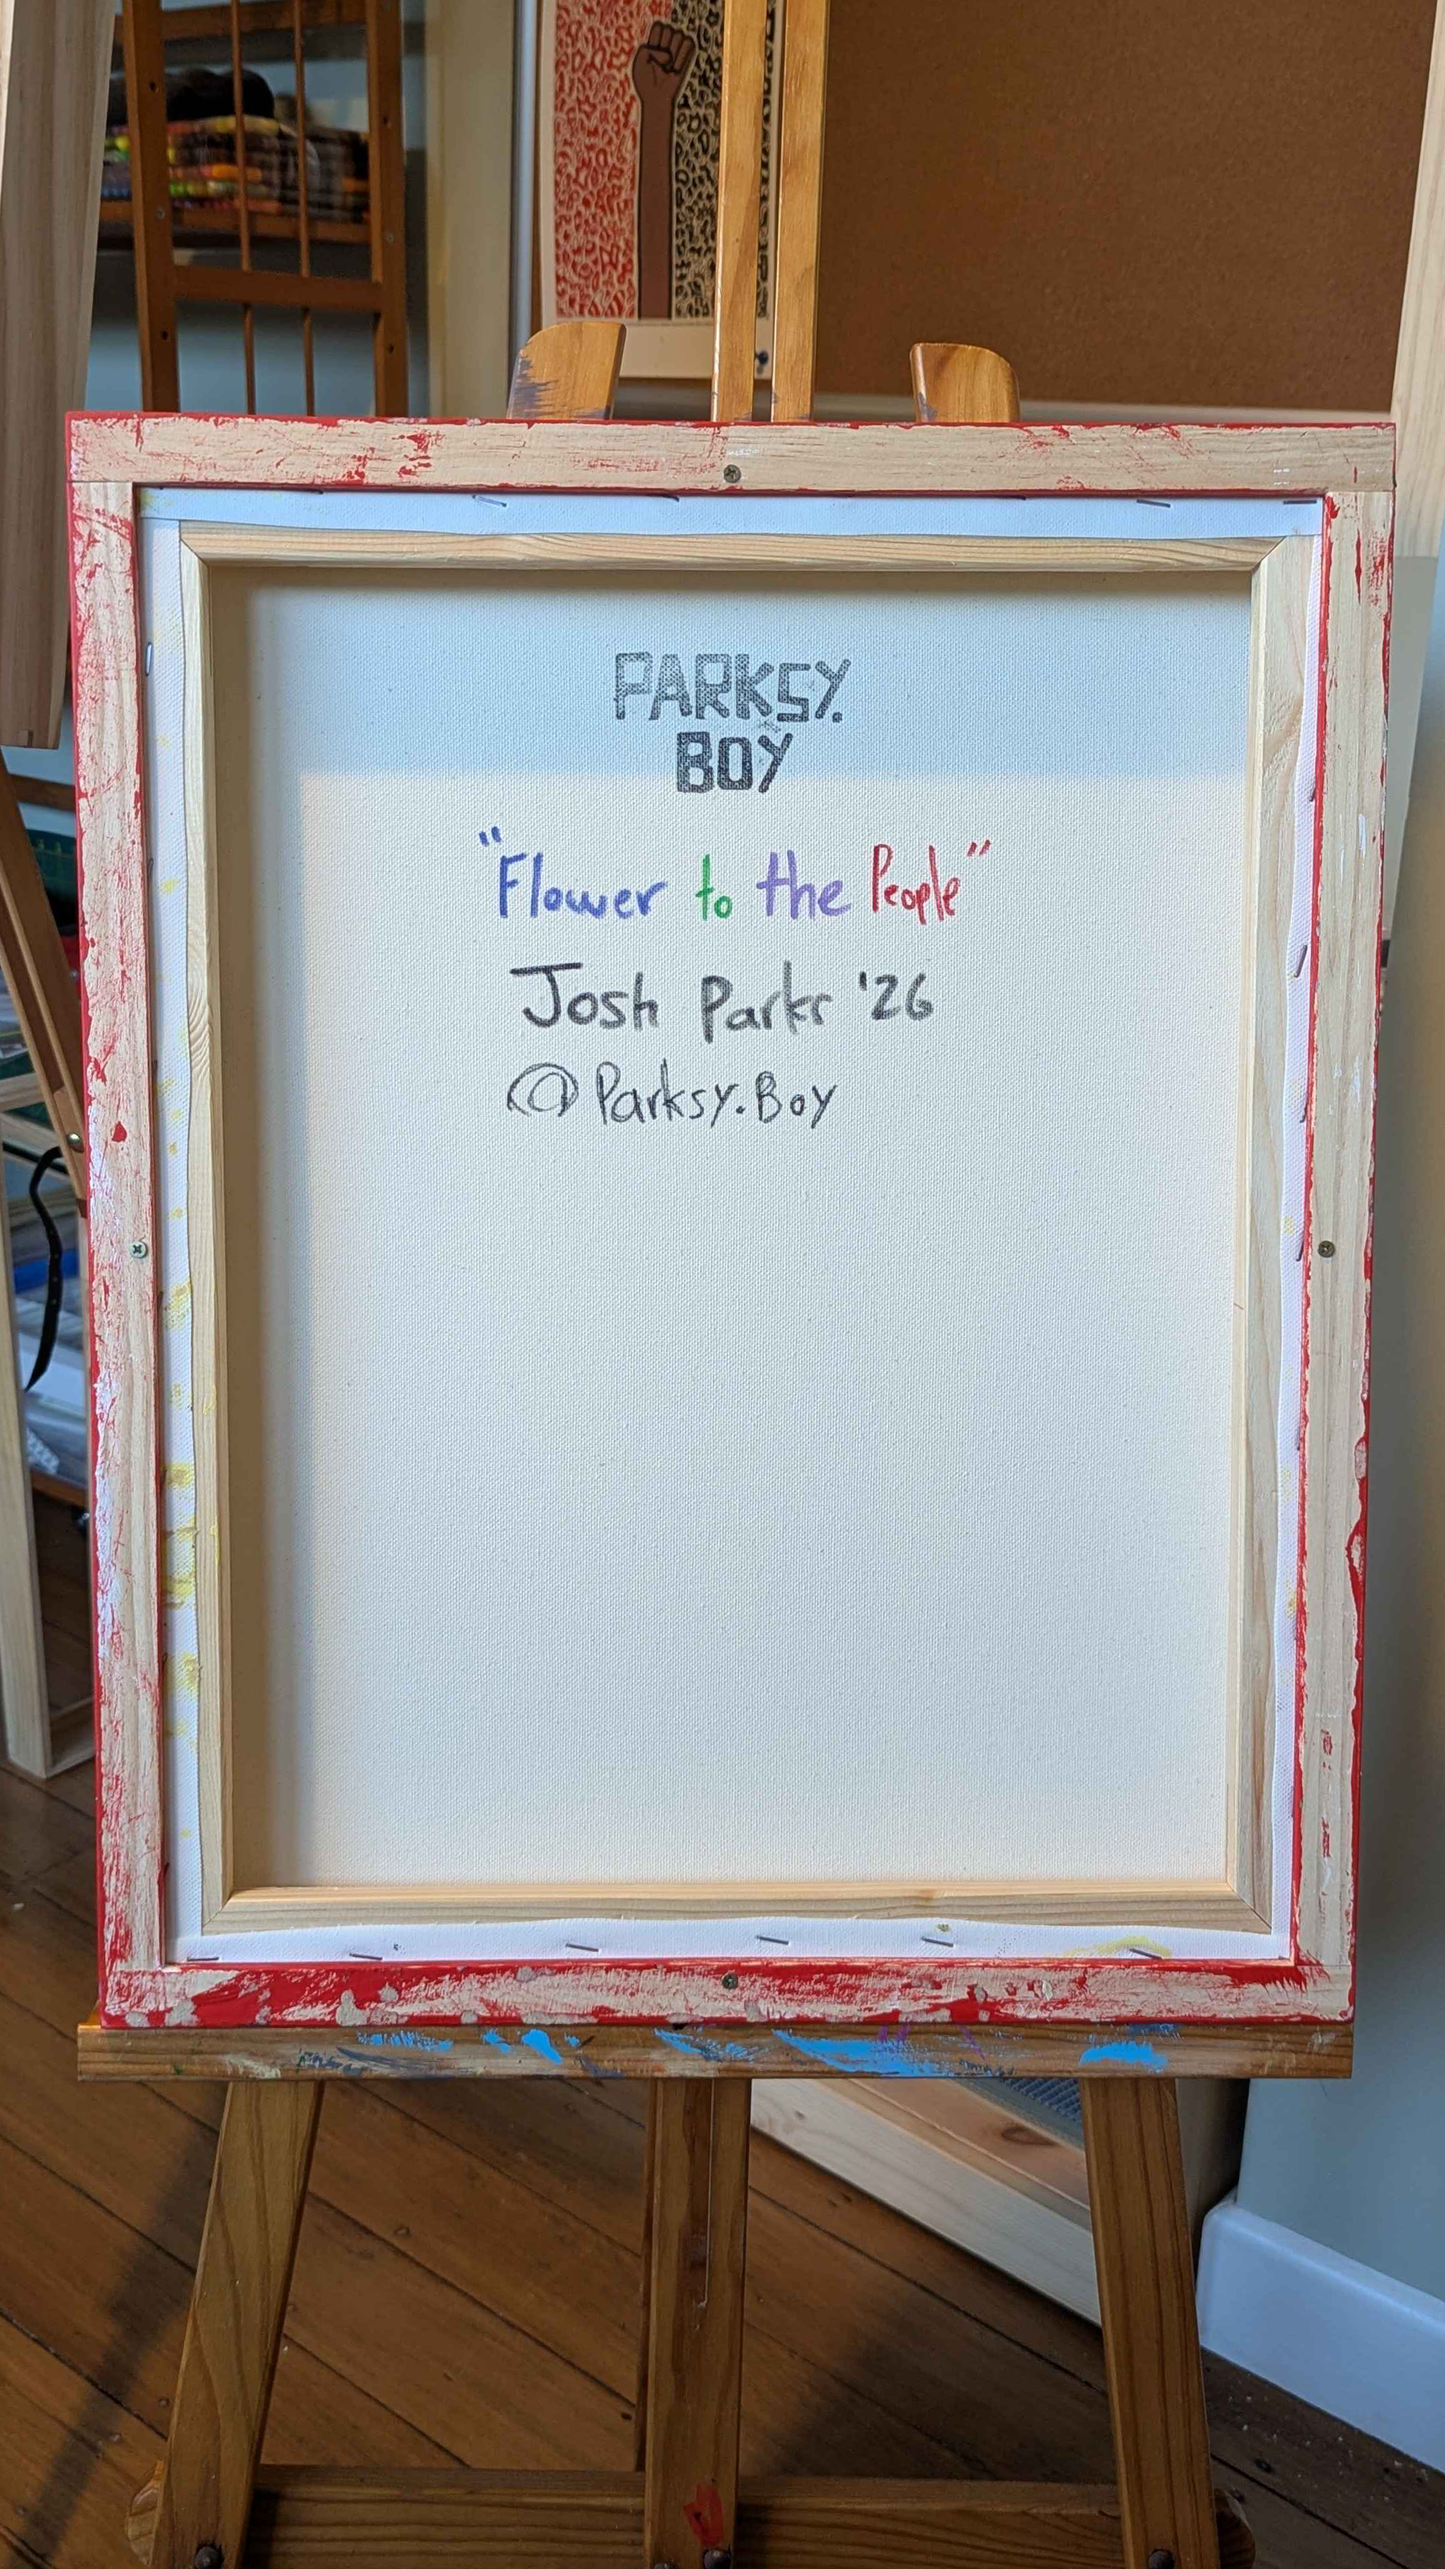 PARKSY.
BOY
"Flower to the People"
Josh Parkr '26
@Parksy.Boy